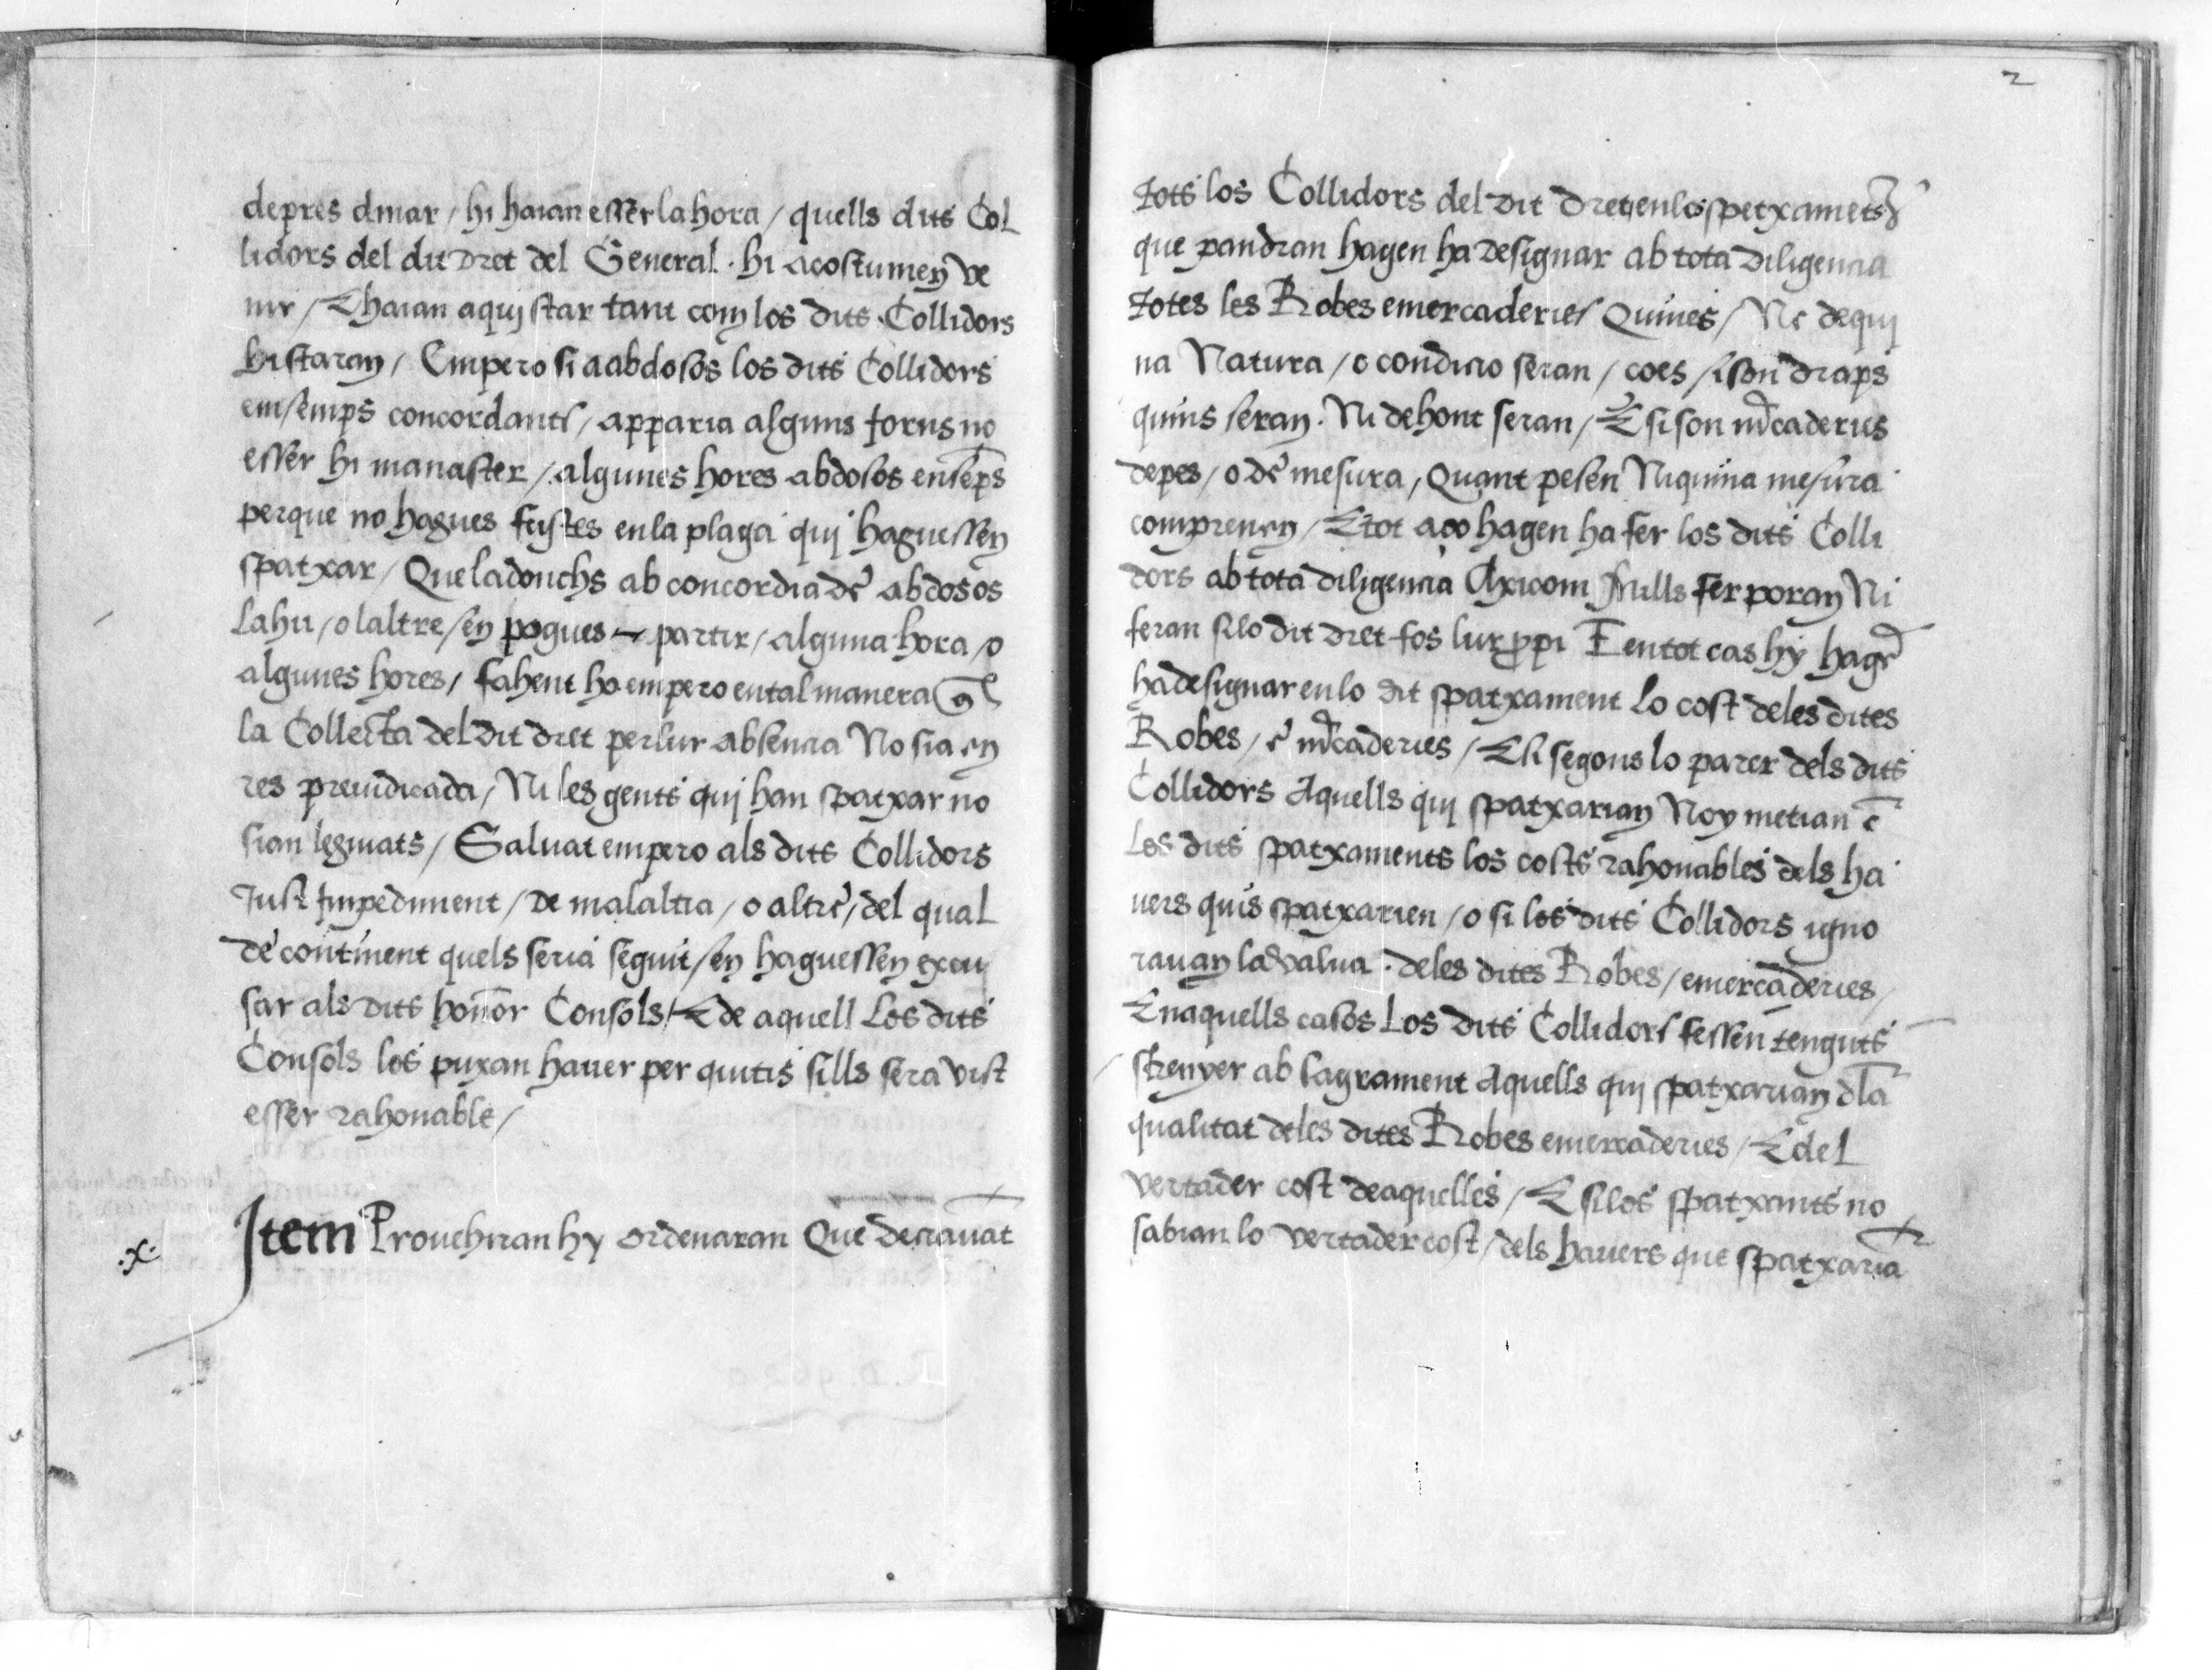 depres dinar / hi haian esser la hora / quells dits Col
lidors del dit Dret del General . hi acostumen ve
nir / E haian aqui star tant com los dits Collidors
histaran / Empero si aabdosos los dits Collidors
emsemps concordants / apparia alguns jorns no
esser hi manaster / algunes hores abdosos ensēps
perque no hagues fustes en la plaga qui haguessen
spatxar / Que ladonchs ab concordia de abdosos
Lahu / o laltre / sen pogues partir / alguna hora / o
algunes hores / fahent ho empero en tal manera q̄
la Collecta del dit dret per lur absencia No sia en
res preiudicada / Ni les gents qui han spatxar no
sian leguiats / Saluat empero als dits Collidors
Just Jmpediment / De malaltia / o altre / del qual
de continent quels seria seguit / sen haguessen excu
sar als dits honor Consols / E de aquell Los dits
Consols los puxan hauer per quitis sills sera vist
esser rahonable /
.x. Item Prouehiran hy ordenaran Que Decrauāt
2
tots los Collidors del dit dret en los spetxamēts
que pandran hagen ha designar ab tota diligencia
totes les Robes e mercaderies Quines / Ne de qui
na Natura / o condicio seran / coes / si son draps
quins seran . Ni de hont seran / E si son mcaderies
de pes / o de mesura , Quant pesen Ni quina mesura
comprenen / E tot aço hagen ha fer los dits Colli
dors ab tota diligencia Axicom mills fer poran Ni
feran si lo dit dret fos lur ppi E en tot cas hy hagē
ha designar en lo dit spatxament Lo cost deles dites
Robes / e mcaderies / E si segons lo parer dels dits
Collidors Aquells qui spatxarian Noy metian ē
Los dits spatxaments los costs rahonables dels ha
uers quis spatxarien / o si los dits Collidors igno
rauan la valua . deles dites Robes / e mercaderies /
En aquells casos Los dits Collidors fessen tenguts
strenyer ab sagrament Aquells qui spatxarian dla
qualitat deles dites Robes e mercaderies / E del
vertader cost de aquelles / E si los spatxants no
sabian lo vertader cost / dels hauers que spatxariā